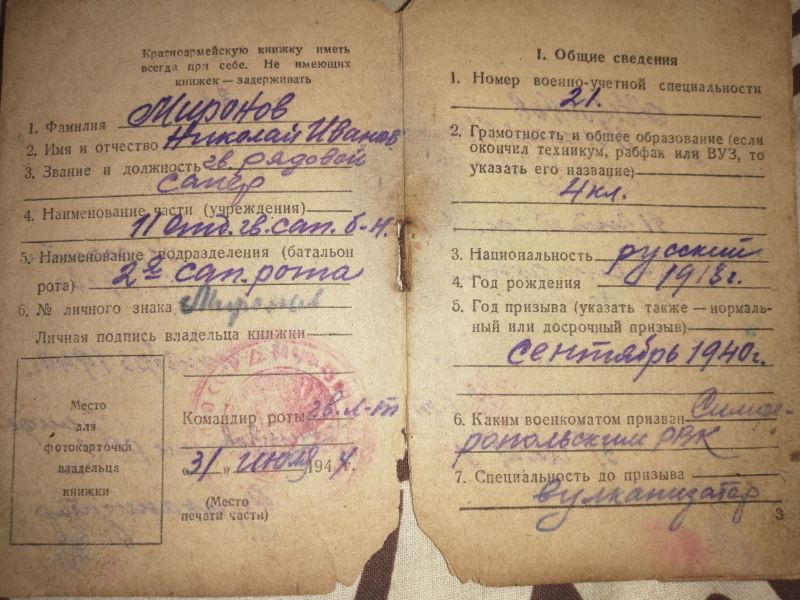 Красноармейскую книжку иметь
всегда при себе. Не имеющих
книжек — задерживать
1. Фамилия Миронов
2. Имя и отчество Николай Иванов
3. Звание и должность гв рядовой
сапер
4. Наименование части (учреждения)
11 отд. гв. сап. б-н.
5. Наименование подразделения (батальон
рота) 2я сап. рота
6. № личного знака Миронов
Личная подпись владельца книжки
Место
для
фотокарточки
владельца
книжки
Командир роты гв. л-т
"31" июля 1944 г.
(Место
печати части)
I. Общие сведения
1. Номер военно-учетной специальности
21.
2. Грамотность и общее образование (если
окончил техникум, рабфак или ВУЗ, то
указать его название)
4 кл.
3. Национальность русский
4. Год рождения 1918 г.
5. Год призыва (указать также — нормаль-
ный или досрочный призыв)
сентябрь 1940 г.
6. Каким военкоматом призван Симфе-
ропольским РВК
7. Специальность до призыва
вулканизатор
3